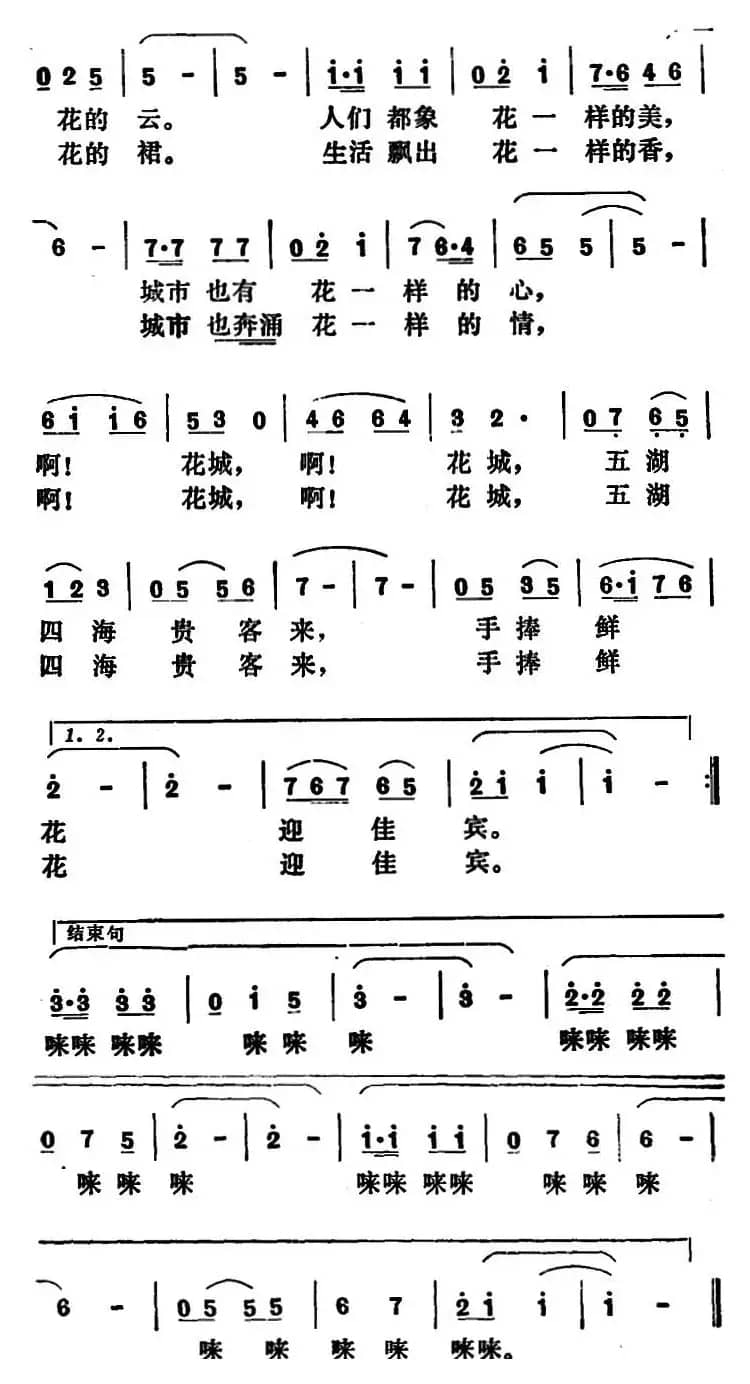 0 2 5 | 5 - | 5 - | i·i i i | 0 2 i | 7·6 4 6 |
花的 云。 人们 都象 花 一 样的美,
花的 裙。 生活 飘出 花 一 样的香,
6 - | 7·7 7 7 | 0 2 i | 7 6·4 | 6 5 5 | 5 - |
城市 也有 花 一 样 的 心,
城市 也奔涌 花 一 样 的 情,
6 i i 6 | 5 3 0 | 4 6 6 4 | 3 2· | 0 7 6 5 |
啊! 花城, 啊! 花 城, 五 湖
啊! 花城, 啊! 花 城, 五 湖
1 2 3 | 0 5 5 6 | 7 - | 7 - | 0 5 3 5 | 6·i 7 6 |
四 海 贵 客 来, 手 捧 鲜
四 海 贵 客 来, 手 捧 鲜
1. 2.
2 - | 2 - | 7 6 7 6 5 | 2 i i | i - :||
花 迎 佳 宾。
花 迎 佳 宾。
结束句
3·3 3 3 | 0 i 5 | 3 - | 3 - | 2·2 2 2 |
唻唻 唻唻 唻 唻 唻 唻唻 唻唻
0 7 5 | 2 - | 2 - | i·i i i | 0 7 6 | 6 - |
唻 唻 唻 唻唻 唻唻 唻 唻 唻
6 - | 0 5 5 5 | 6 7 | 2 i i | i - ||
唻 唻 唻 唻 唻唻。